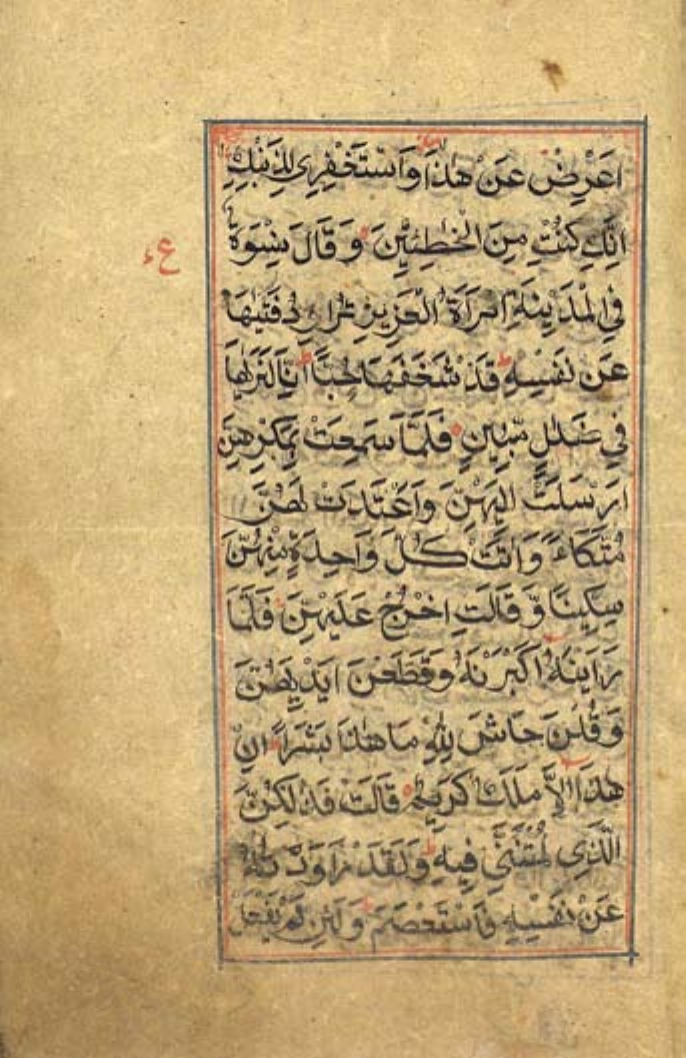 اَعْرِضْ عَنْ هٰذَا وَاسْتَغْفِرِی لِذَنْۢبِكِ
اِنَّكِ كُنْتِ مِنَ الْخٰطِئِیْنَ وَ قَالَ نِسْوَةٌ
فِی الْمَدِیْنَةِ امْرَاَةُ الْعَزِیْزِ تُرَاوِدُ فَتٰىهَا
عَنْ نَفْسِهٖ قَدْ شَغَفَهَا حُبًّا اِنَّا لَنَرٰىهَا
فِی ضَلٰلٍ مُّبِیْنٍ فَلَمَّا سَمِعَتْ بِمَكْرِهِنَّ
اَرْسَلَتْ اِلَیْهِنَّ وَاَعْتَدَتْ لَهُنَّ
مُتَّكَاءً وَاٰتَتْ كُلَّ وَاحِدَةٍ مِنْهُنَّ
سِكِّیْنًا وَّ قَالَتِ اخْرُجْ عَلَیْهِنَّ فَلَمَّا
رَاَیْنَهٗ اَكْبَرْنَهٗ وَقَطَّعْنَ اَیْدِیَهُنَّ
وَ قُلْنَ حَاشَ لِلّٰهِ مَا هٰذَا بَشَرًا اِنْ
هٰذَا اِلَّا مَلَكٌ كَرِیْمٌ قَالَتْ فَذٰلِكُنَّ
الَّذِی لُمْتُنَّنِی فِیْهِ وَلَقَدْ رَاوَدْتُهٗ
عَنْ نَفْسِهٖ فَاسْتَعْصَمَ وَ لَئِنْ لَمْ یَفْعَلْ
ع